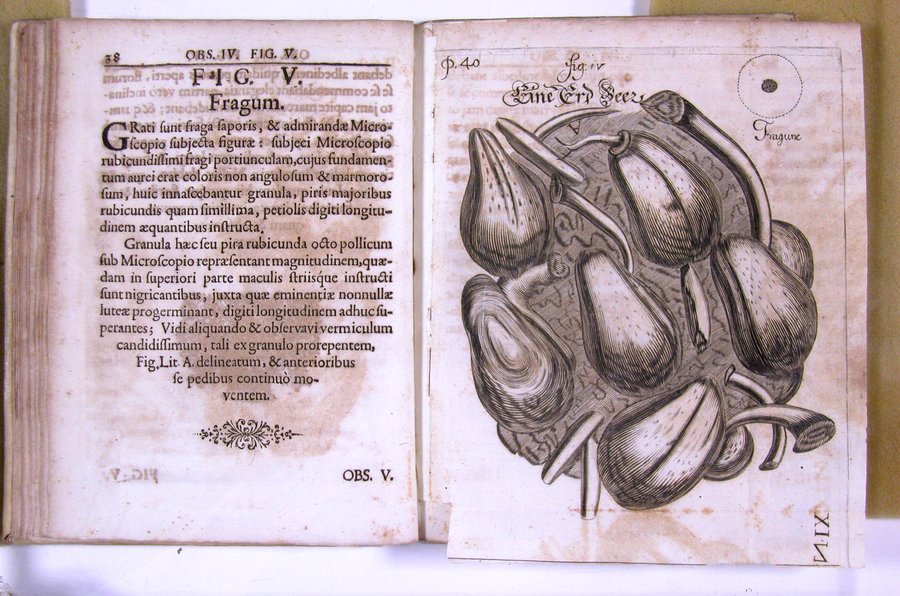 38 OBS. IV. FIG. V.
FIG. V.
Fragum.
GRati sunt fraga saporis, & admirandæ Micro-
scopio subjecta figuræ: subjeci Microscopio
rubicundissimi fragi portiunculam, cujus fundamen-
tum aurei erat coloris non angulosum & marmoro-
sum, huic innascebantur granula, piris majoribus
rubicundis quam simillima, petiolis digiti longitu-
dinem æquantibus instructa.
Granula hæc seu pira rubicunda octo pollicum
sub Microscopio repræsentant magnitudinem, quæ-
dam in superiori parte maculis striisque instructi
sunt nigricantibus, juxta quæ eminentiæ nonnullæ
luteæ progerminant, digiti longitudinem adhuc su-
perantes; Vidi aliquando & observavi vermiculum
candidissimum, tali ex granulo prorepentem,
Fig, Lit. A. delineatum, & anterioribus
se pedibus continuò mo-
ventem.
OBS. V.
P. 40
fig: iv
Eine Erd Beer
A
Fragune
N·IX